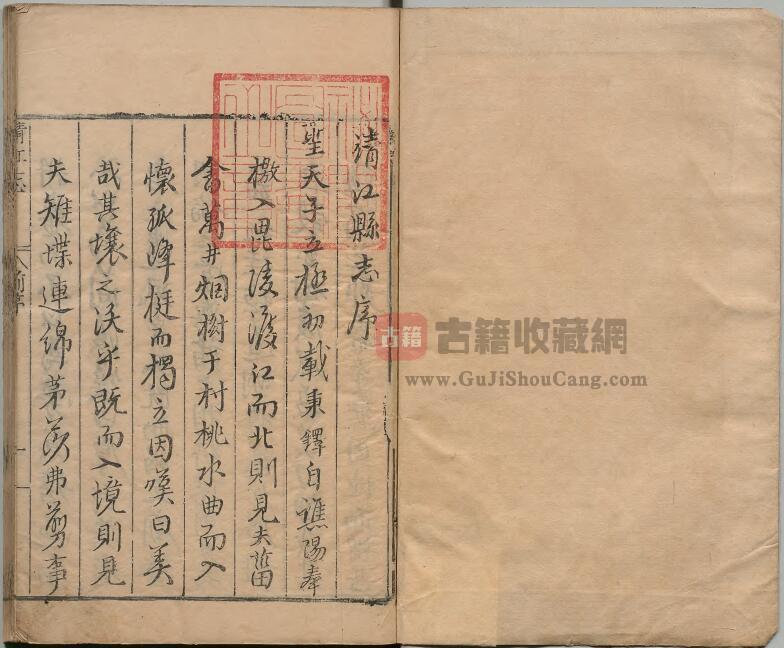 靖江縣志序
聖天子立極初載秉鐸自譙陽奉
檄入毘陵渡江而北則見夫菑
畬萬井烟樹千村桃水曲而入
懷孤峰挺而獨立因嘆曰美
哉其壤之沃乎既而入境則見
夫雉堞連綿茅茨弗剪事
靖江志
前序
一
古籍
古籍收藏網
www.GuJiShouCang.com